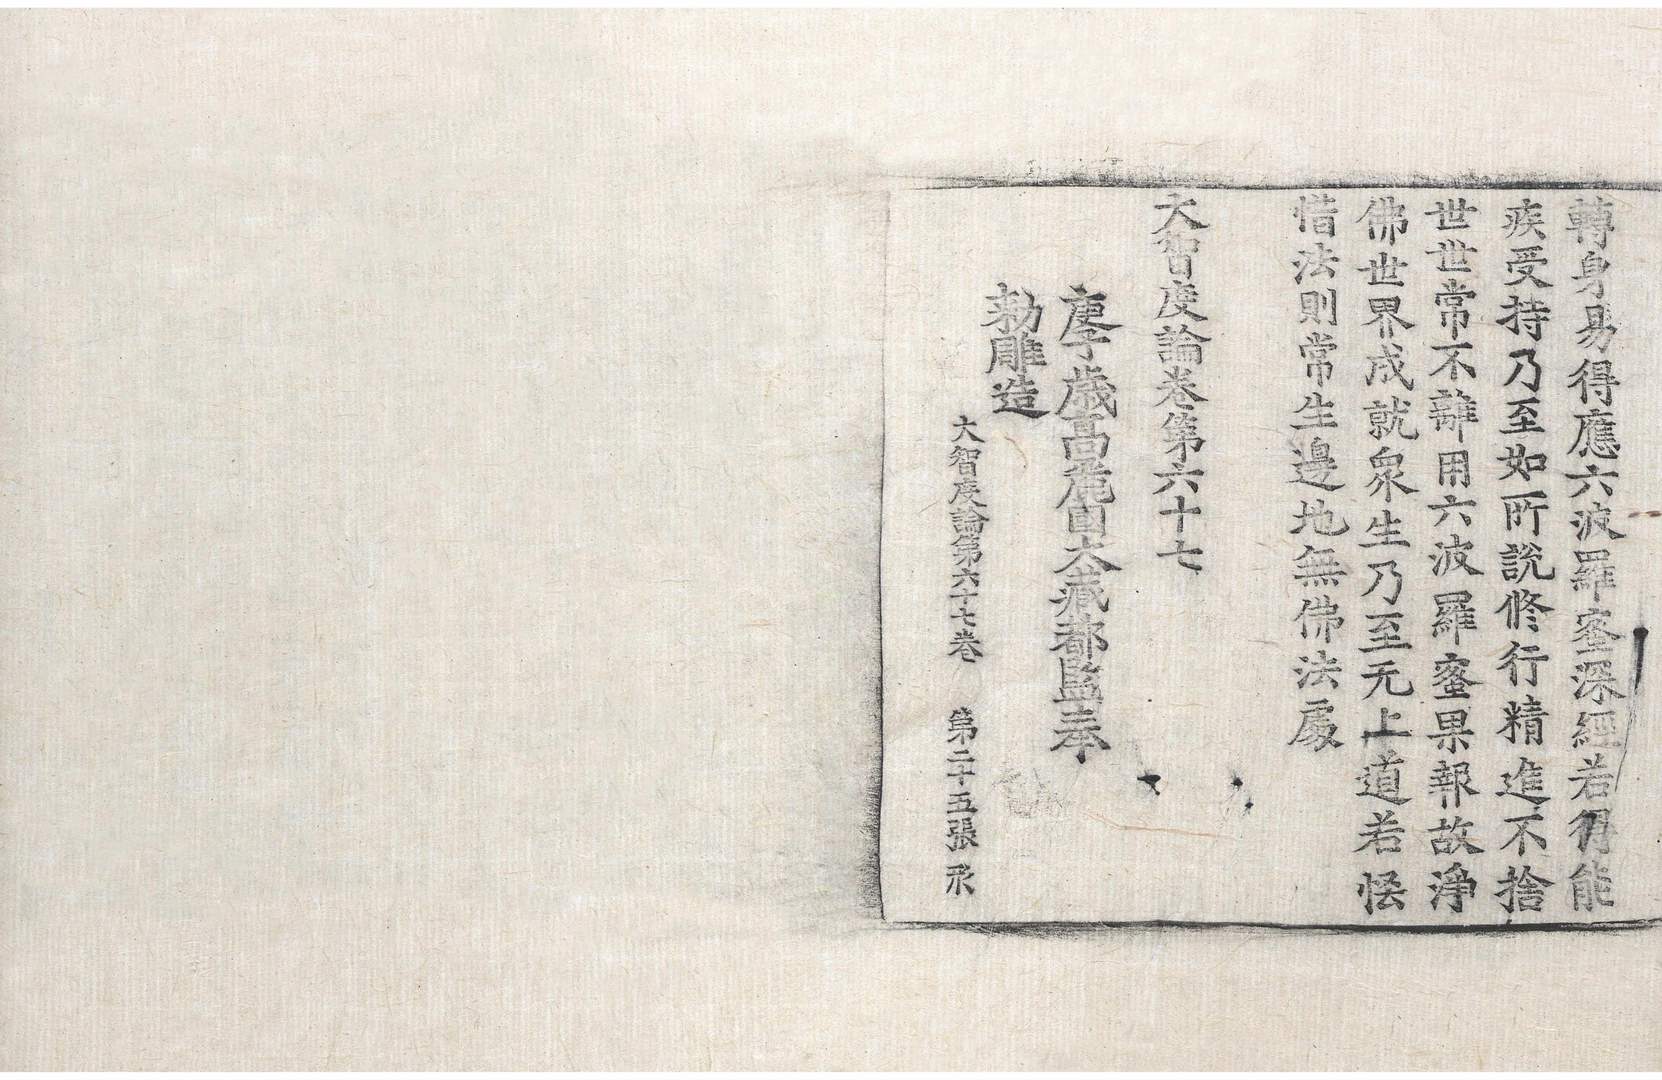 轉身易得應六波羅蜜深經若得能
疾受持乃至如所說修行精進不捨
世世常不離用六波羅蜜果報故淨
佛世界成就眾生乃至无上道若恡
惜法則常生邊地無佛法處
大智度論卷第六十七
庚子歲高麗國大藏都監奉
勅雕造
大智度論第六十七卷 第二十五張